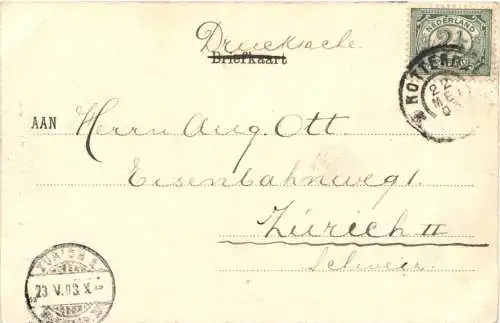 Drucksache
Briefkaart
NEDERLAND
2½
ROTTERD
22
MEI
AAN Herrn Aug. Ott.
Eisenbahnweg 1.
Zürich II
Schweiz
ZÜRICH
23.V.03.X